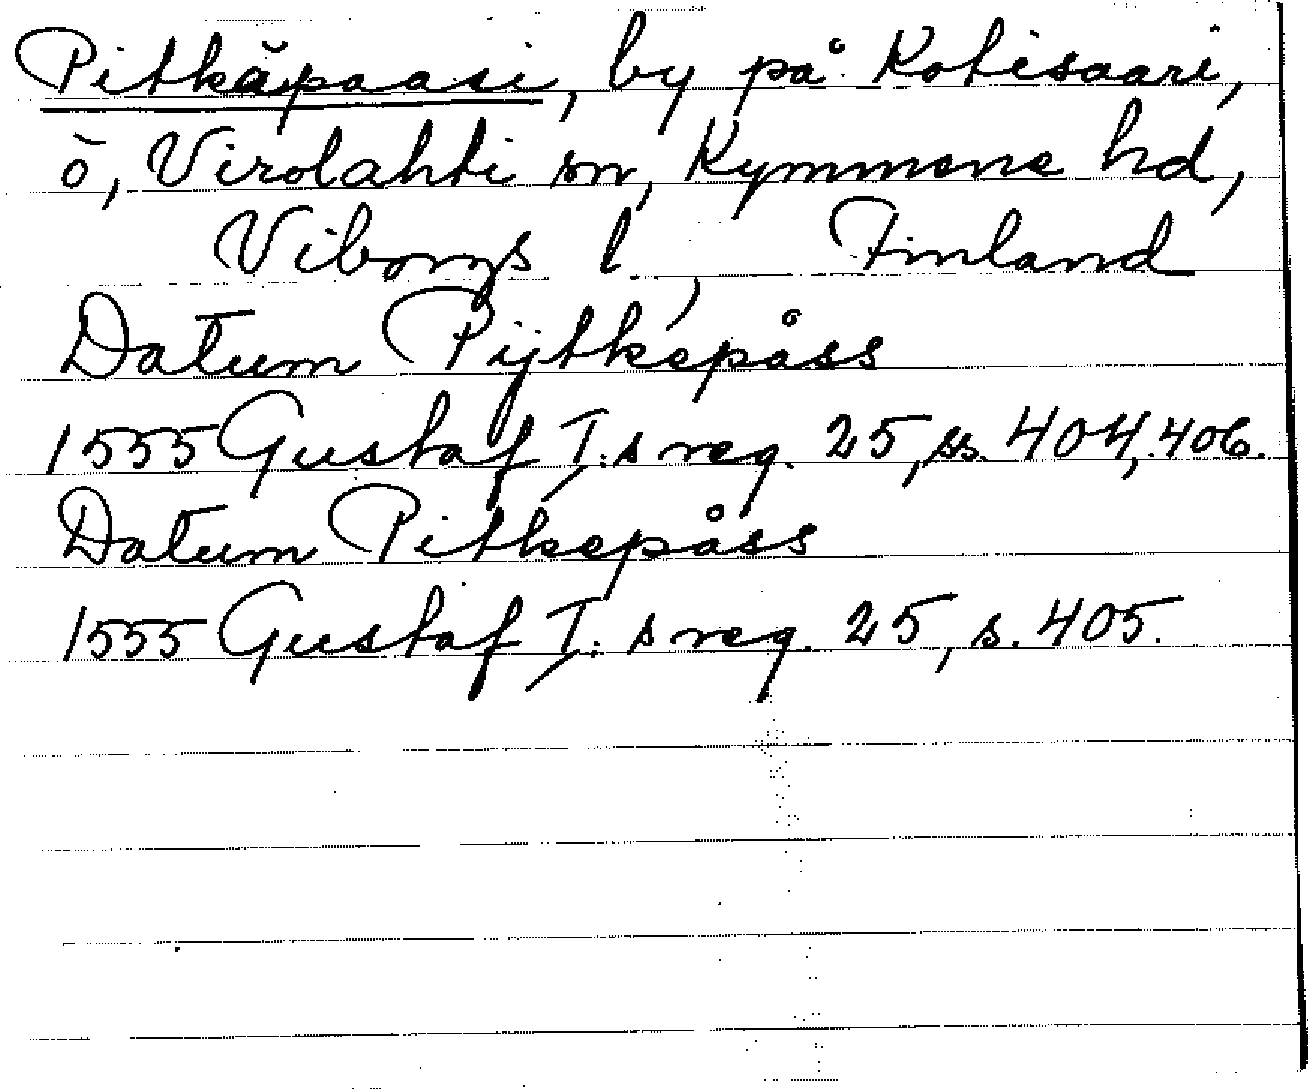 Pitkäpaasi, by på Kotisaari,
ö, Virolahti sn, Kymmene hd,
Viborgs l, Finland
Datum Pijtkepåss
1555 Gustaf I:s reg. 25, ss. 404, 406.
Datum Pitkepåss
1555 Gustaf I:s reg. 25, s. 405.